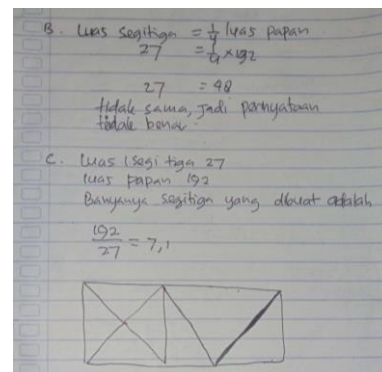 B. Luas segitiga = 1/4 luas papan
27 = 1/4 × 192
27 = 48
tidak sama, jadi pernyataan
tidak benar.
C. Luas segi tiga 27
luas papan 192
Banyanya segitiga yang dibuat adalah
192/27 = 7,1